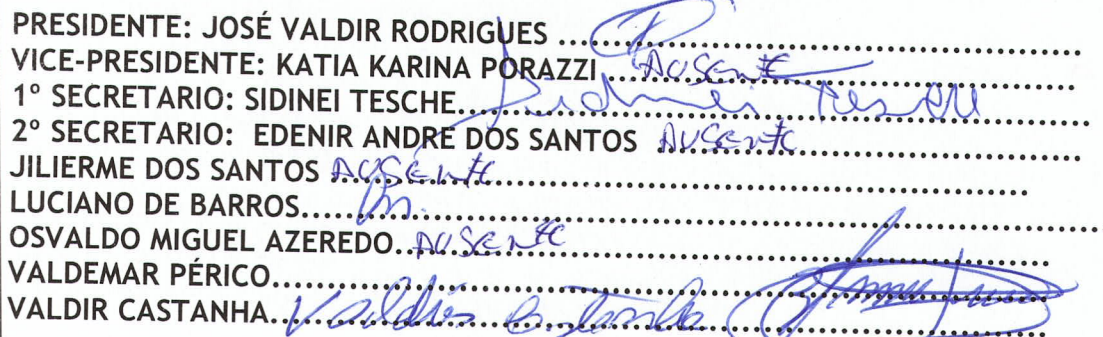 PRESIDENTE: JOSÉ VALDIR RODRIGUES ........................................
VICE-PRESIDENTE: KATIA KARINA PORAZZI....Ausente........................
1º SECRETARIO: SIDINEI TESCHE....Sidinei Tesche....................
2º SECRETARIO: EDENIR ANDRE DOS SANTOS Ausente........................
JILIERME DOS SANTOS Ausente........................................
LUCIANO DE BARROS........................................
OSVALDO MIGUEL AZEREDO..Ausente........................................
VALDEMAR PÉRICO........................................
VALDIR CASTANHA...Valdir Castanha........................................